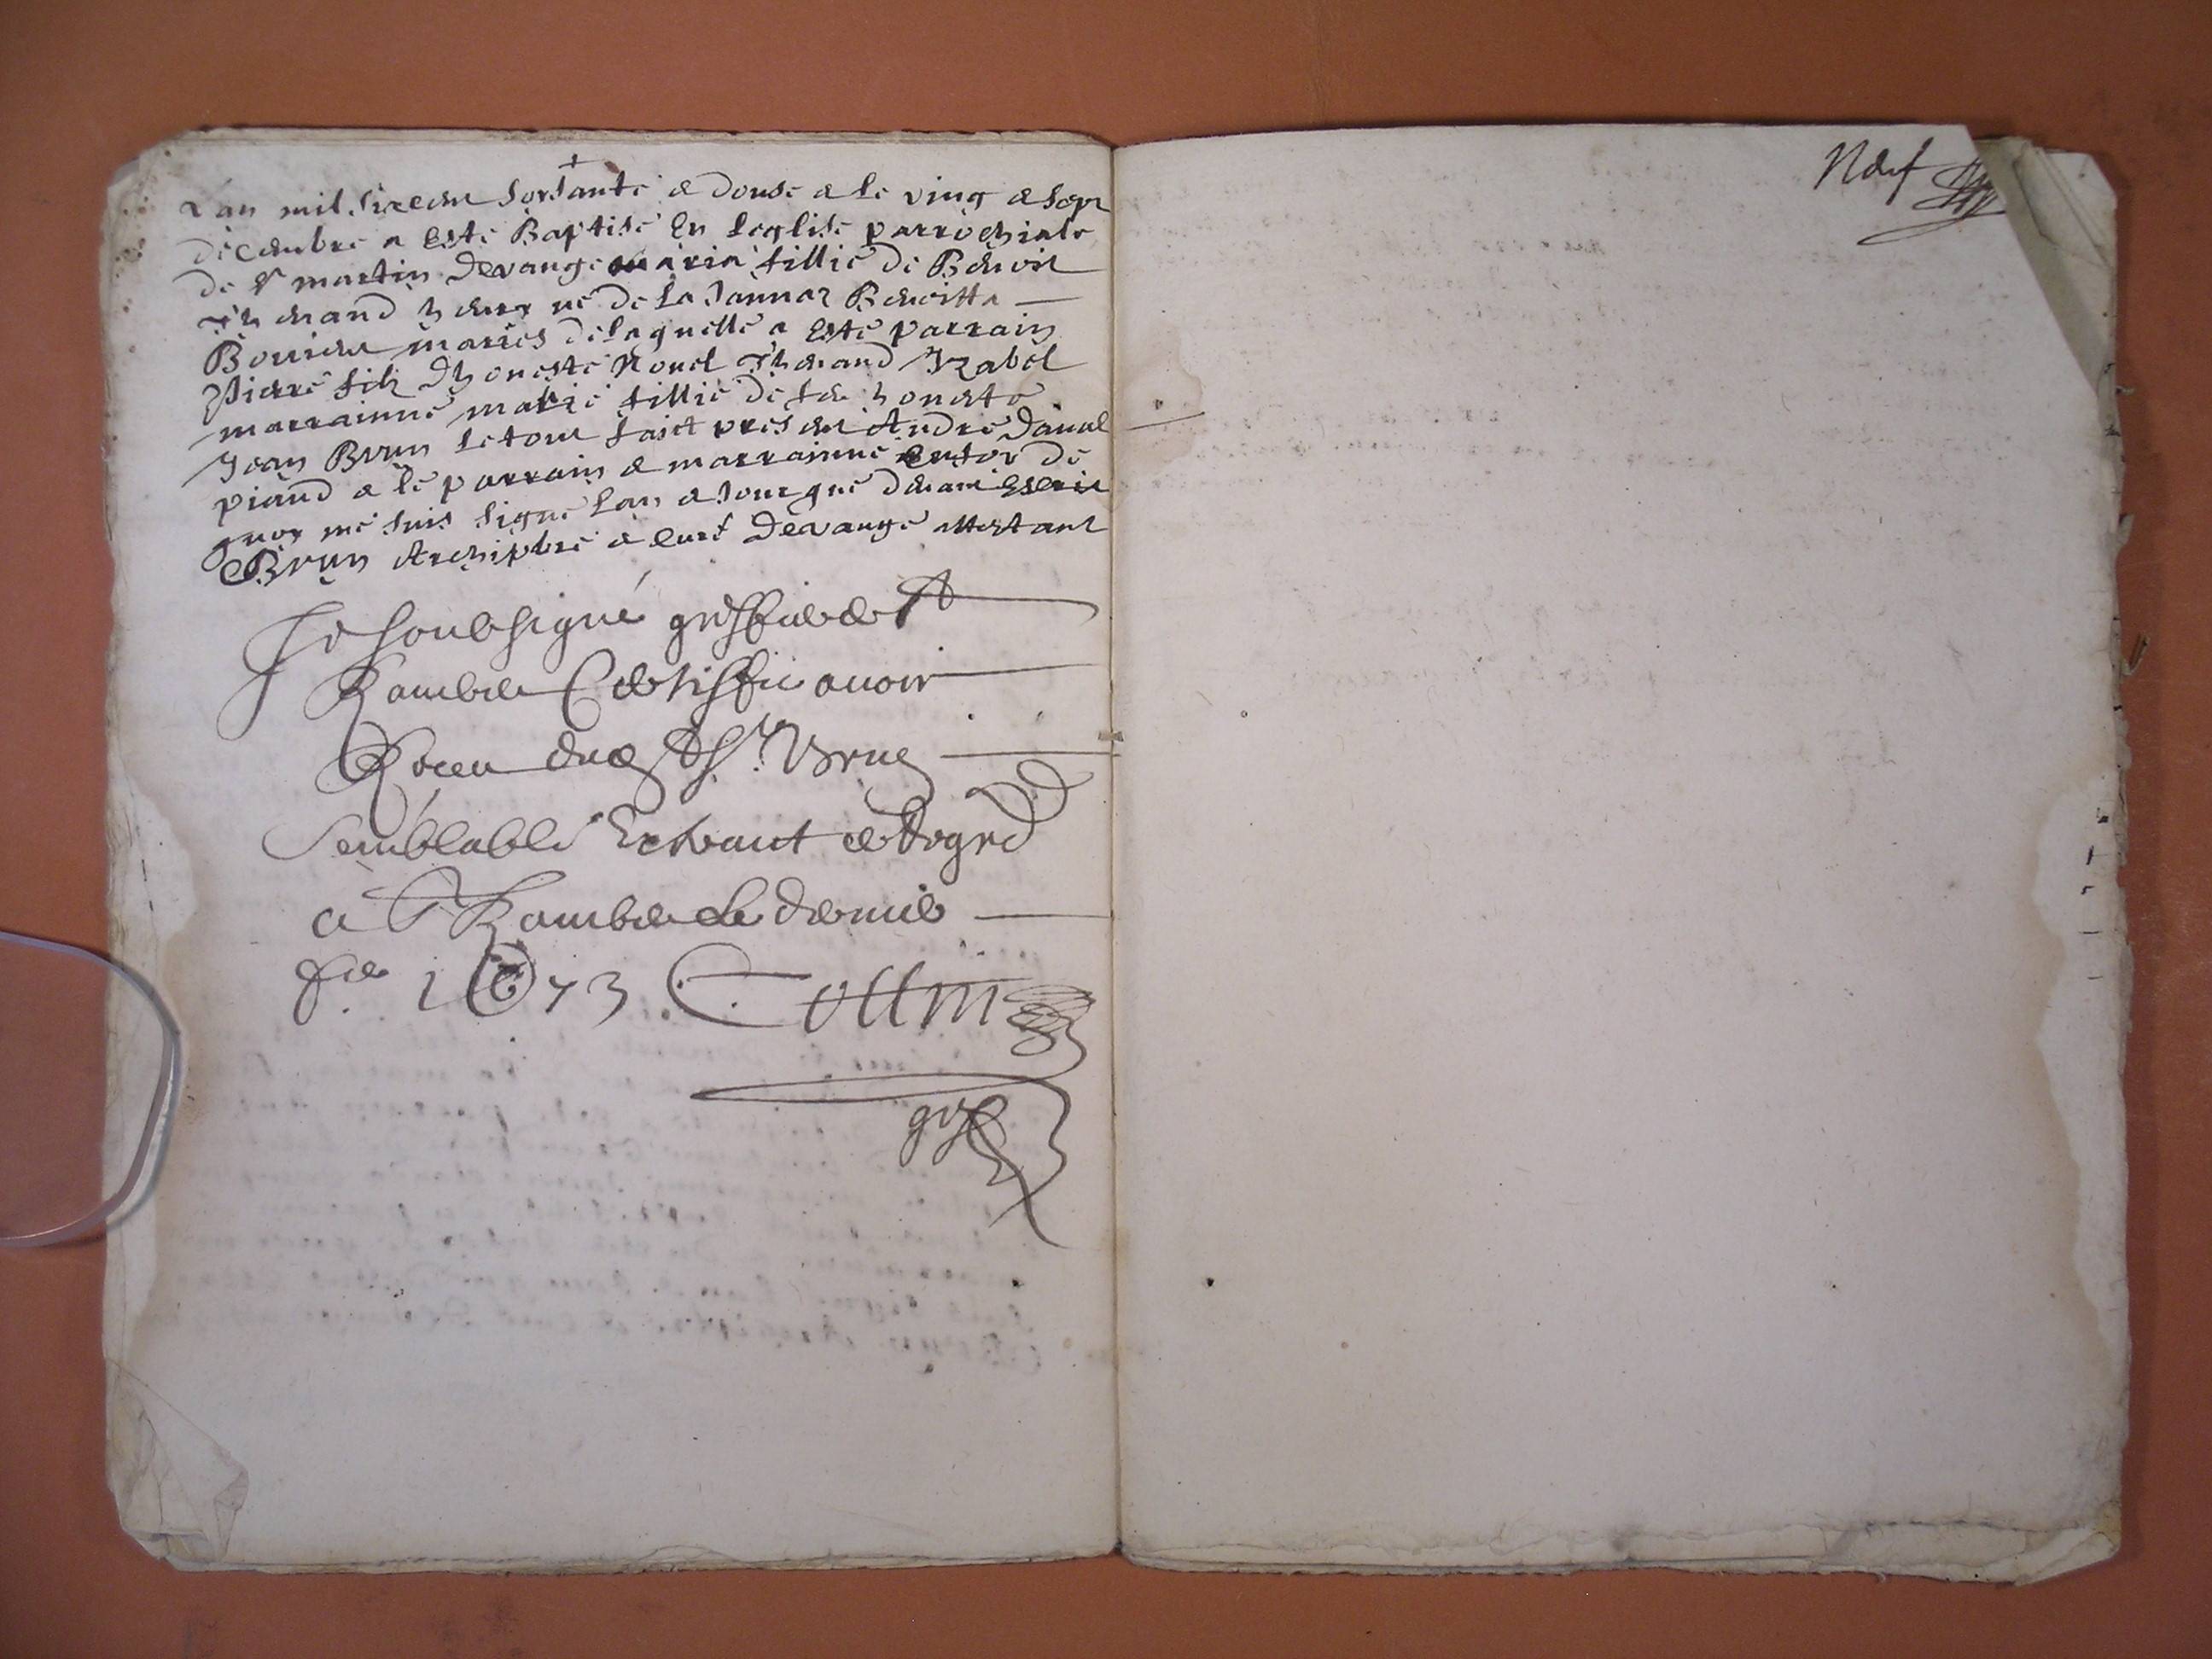 L'an mil sixcens soixsante & douse & le ving & sept
décembre a esté Baptisé En leglise parrochiale
de St martin Devange maria fillie de Benoit
Thenand de la Benoitte
mariés delaquelle a esté parrain
Pierre filz Dhoneste Nouel Thenand Yzabel
marrainne maKie fillie de feu honeste
Jean Brun le tout faict presens André
piand & le parrain & marrainne en foy de
quoy me suis signé lan & Jour que devant Escrit
Brun Archiptre & curé Devange attestant
Je Soubsigné greffier de St
Rambert Certiffie avoir
Receu dud Sr Brun
Semblable Extraict et Regrē
a St Rambert le dernier
1673 Collin
greff
Neuf